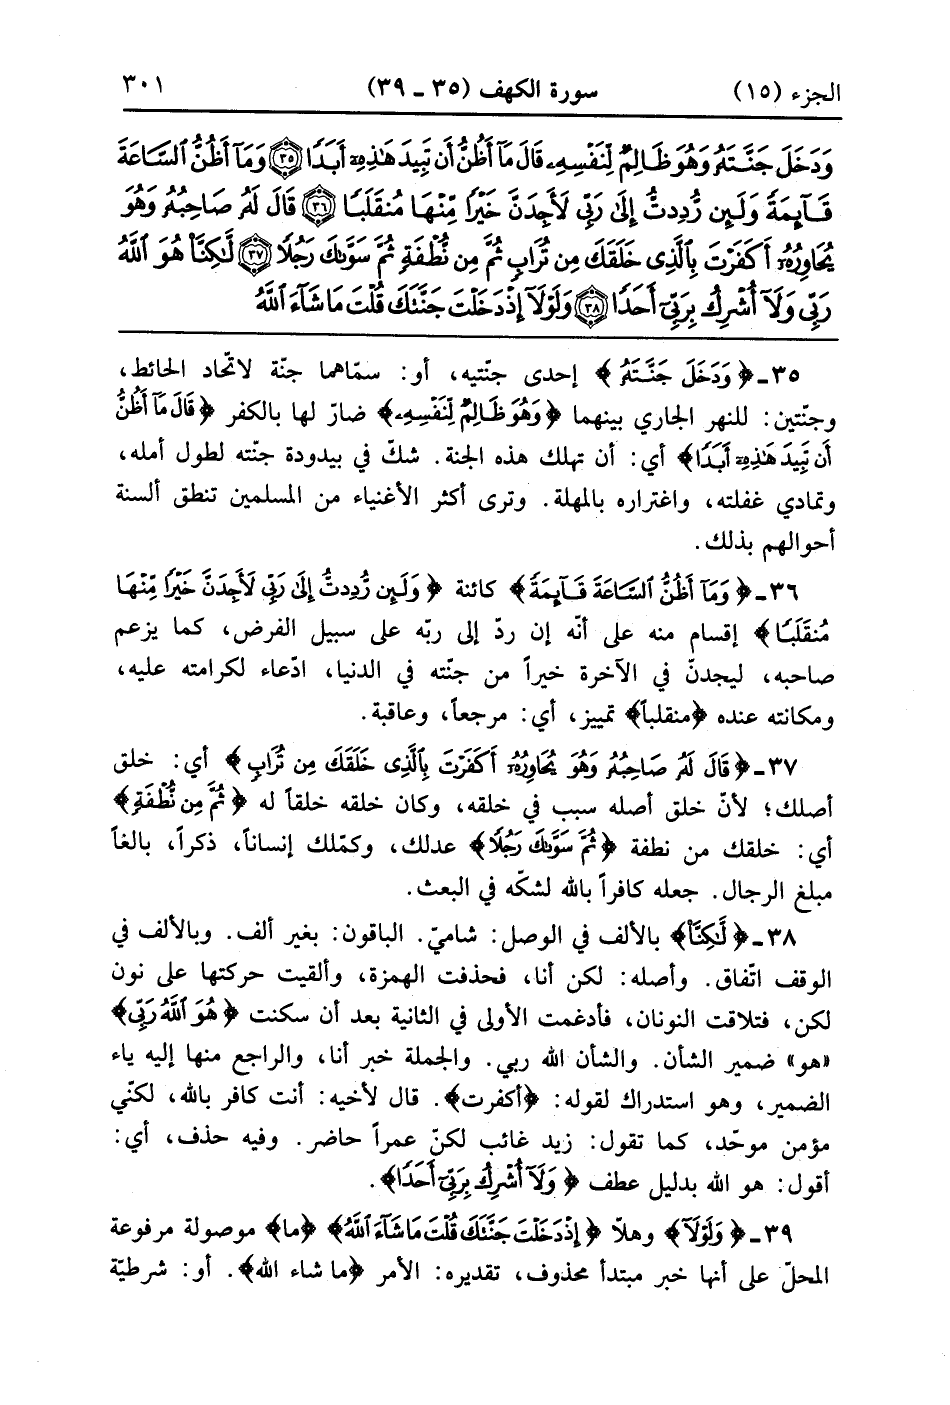 الجزء (١٥) سورة الكهف (٣٥ ـ ٣٩) ٣٠١
وَدَخَلَ جَنَّتَهُۥ وَهُوَ ظَالِمٌ لِّنَفْسِهِۦ قَالَ مَآ أَظُنُّ أَن تَبِيدَ هَٰذِهِۦٓ أَبَدًا ﴿٣٥﴾ وَمَآ أَظُنُّ ٱلسَّاعَةَ
قَآئِمَةً وَلَئِن رُّدِدتُّ إِلَىٰ رَبِّى لَأَجِدَنَّ خَيْرًا مِّنْهَا مُنقَلَبًا ﴿٣٦﴾ قَالَ لَهُۥ صَاحِبُهُۥ وَهُوَ
يُحَاوِرُهُۥٓ أَكَفَرْتَ بِٱلَّذِى خَلَقَكَ مِن تُرَابٍ ثُمَّ مِن نُّطْفَةٍ ثُمَّ سَوَّىٰكَ رَجُلًا ﴿٣٧﴾ لَّٰكِنَّا۠ هُوَ ٱللَّهُ
رَبِّى وَلَآ أُشْرِكُ بِرَبِّىٓ أَحَدًا ﴿٣٨﴾ وَلَوْلَآ إِذْ دَخَلْتَ جَنَّتَكَ قُلْتَ مَا شَآءَ ٱللَّهُ
٣٥ ـ ﴿وَدَخَلَ جَنَّتَهُۥ﴾ إحدى جنّتيه، أو: سمّاهما جنّة لاتّحاد الحائط،
وجنّتين: للنهر الجاري بينهما ﴿وَهُوَ ظَالِمٌ لِّنَفْسِهِۦ﴾ ضارّ لها بالكفر ﴿قَالَ مَآ أَظُنُّ
أَن تَبِيدَ هَٰذِهِۦٓ أَبَدًا﴾ أي: أن تهلك هذه الجنة. شكّ في بيدودة جنّته لطول أمله،
وتمادي غفلته، واغتراره بالمهلة. وترى أكثر الأغنياء من المسلمين تنطق ألسنة
أحوالهم بذلك.
٣٦ ـ ﴿وَمَآ أَظُنُّ ٱلسَّاعَةَ قَآئِمَةً﴾ كائنة ﴿وَلَئِن رُّدِدتُّ إِلَىٰ رَبِّى لَأَجِدَنَّ خَيْرًا مِّنْهَا
مُنقَلَبًا﴾ إقسام منه على أنّه إن ردّ إلى ربّه على سبيل الفرض، كما يزعم
صاحبه، ليجدنّ في الآخرة خيراً من جنّته في الدنيا، ادّعاء لكرامته عليه،
ومكانته عنده ﴿منقلباً﴾ تمييز، أي: مرجعاً، وعاقبة.
٣٧ ـ ﴿قَالَ لَهُۥ صَاحِبُهُۥ وَهُوَ يُحَاوِرُهُۥٓ أَكَفَرْتَ بِٱلَّذِى خَلَقَكَ مِن تُرَابٍ﴾ أي: خلق
أصلك؛ لأنّ خلق أصله سبب في خلقه، وكان خلقه خلقاً له ﴿ثُمَّ مِن نُّطْفَةٍ﴾
أي: خلقك من نطفة ﴿ثُمَّ سَوَّىٰكَ رَجُلًا﴾ عدلك، وكمّلك إنساناً، ذكراً، بالغاً
مبلغ الرجال. جعله كافراً بالله لشكّه في البعث.
٣٨ ـ ﴿لَّٰكِنَّا۠﴾ بالألف في الوصل: شاميّ. الباقون: بغير ألف. وبالألف في
الوقف اتّفاق. وأصله: لكن أنا، فحذفت الهمزة، وألقيت حركتها على نون
لكن، فتلاقت النونان، فأدغمت الأولى في الثانية بعد أن سكنت ﴿هُوَ ٱللَّهُ رَبِّى﴾
«هو» ضمير الشأن. والشأن الله ربي. والجملة خبر أنا، والراجع منها إليه ياء
الضمير، وهو استدراك لقوله: ﴿أكفرت﴾. قال لأخيه: أنت كافر بالله، لكنّي
مؤمن موحّد، كما تقول: زيد غائب لكنّ عمراً حاضر. وفيه حذف، أي:
أقول: هو الله بدليل عطف ﴿وَلَآ أُشْرِكُ بِرَبِّىٓ أَحَدًا﴾.
٣٩ ـ ﴿وَلَوْلَآ﴾ وهلّا ﴿إِذْ دَخَلْتَ جَنَّتَكَ قُلْتَ مَا شَآءَ ٱللَّهُ﴾ ﴿ما﴾ موصولة مرفوعة
المحلّ على أنها خبر مبتدأ محذوف، تقديره: الأمر ﴿ما شاء الله﴾. أو: شرطيّة